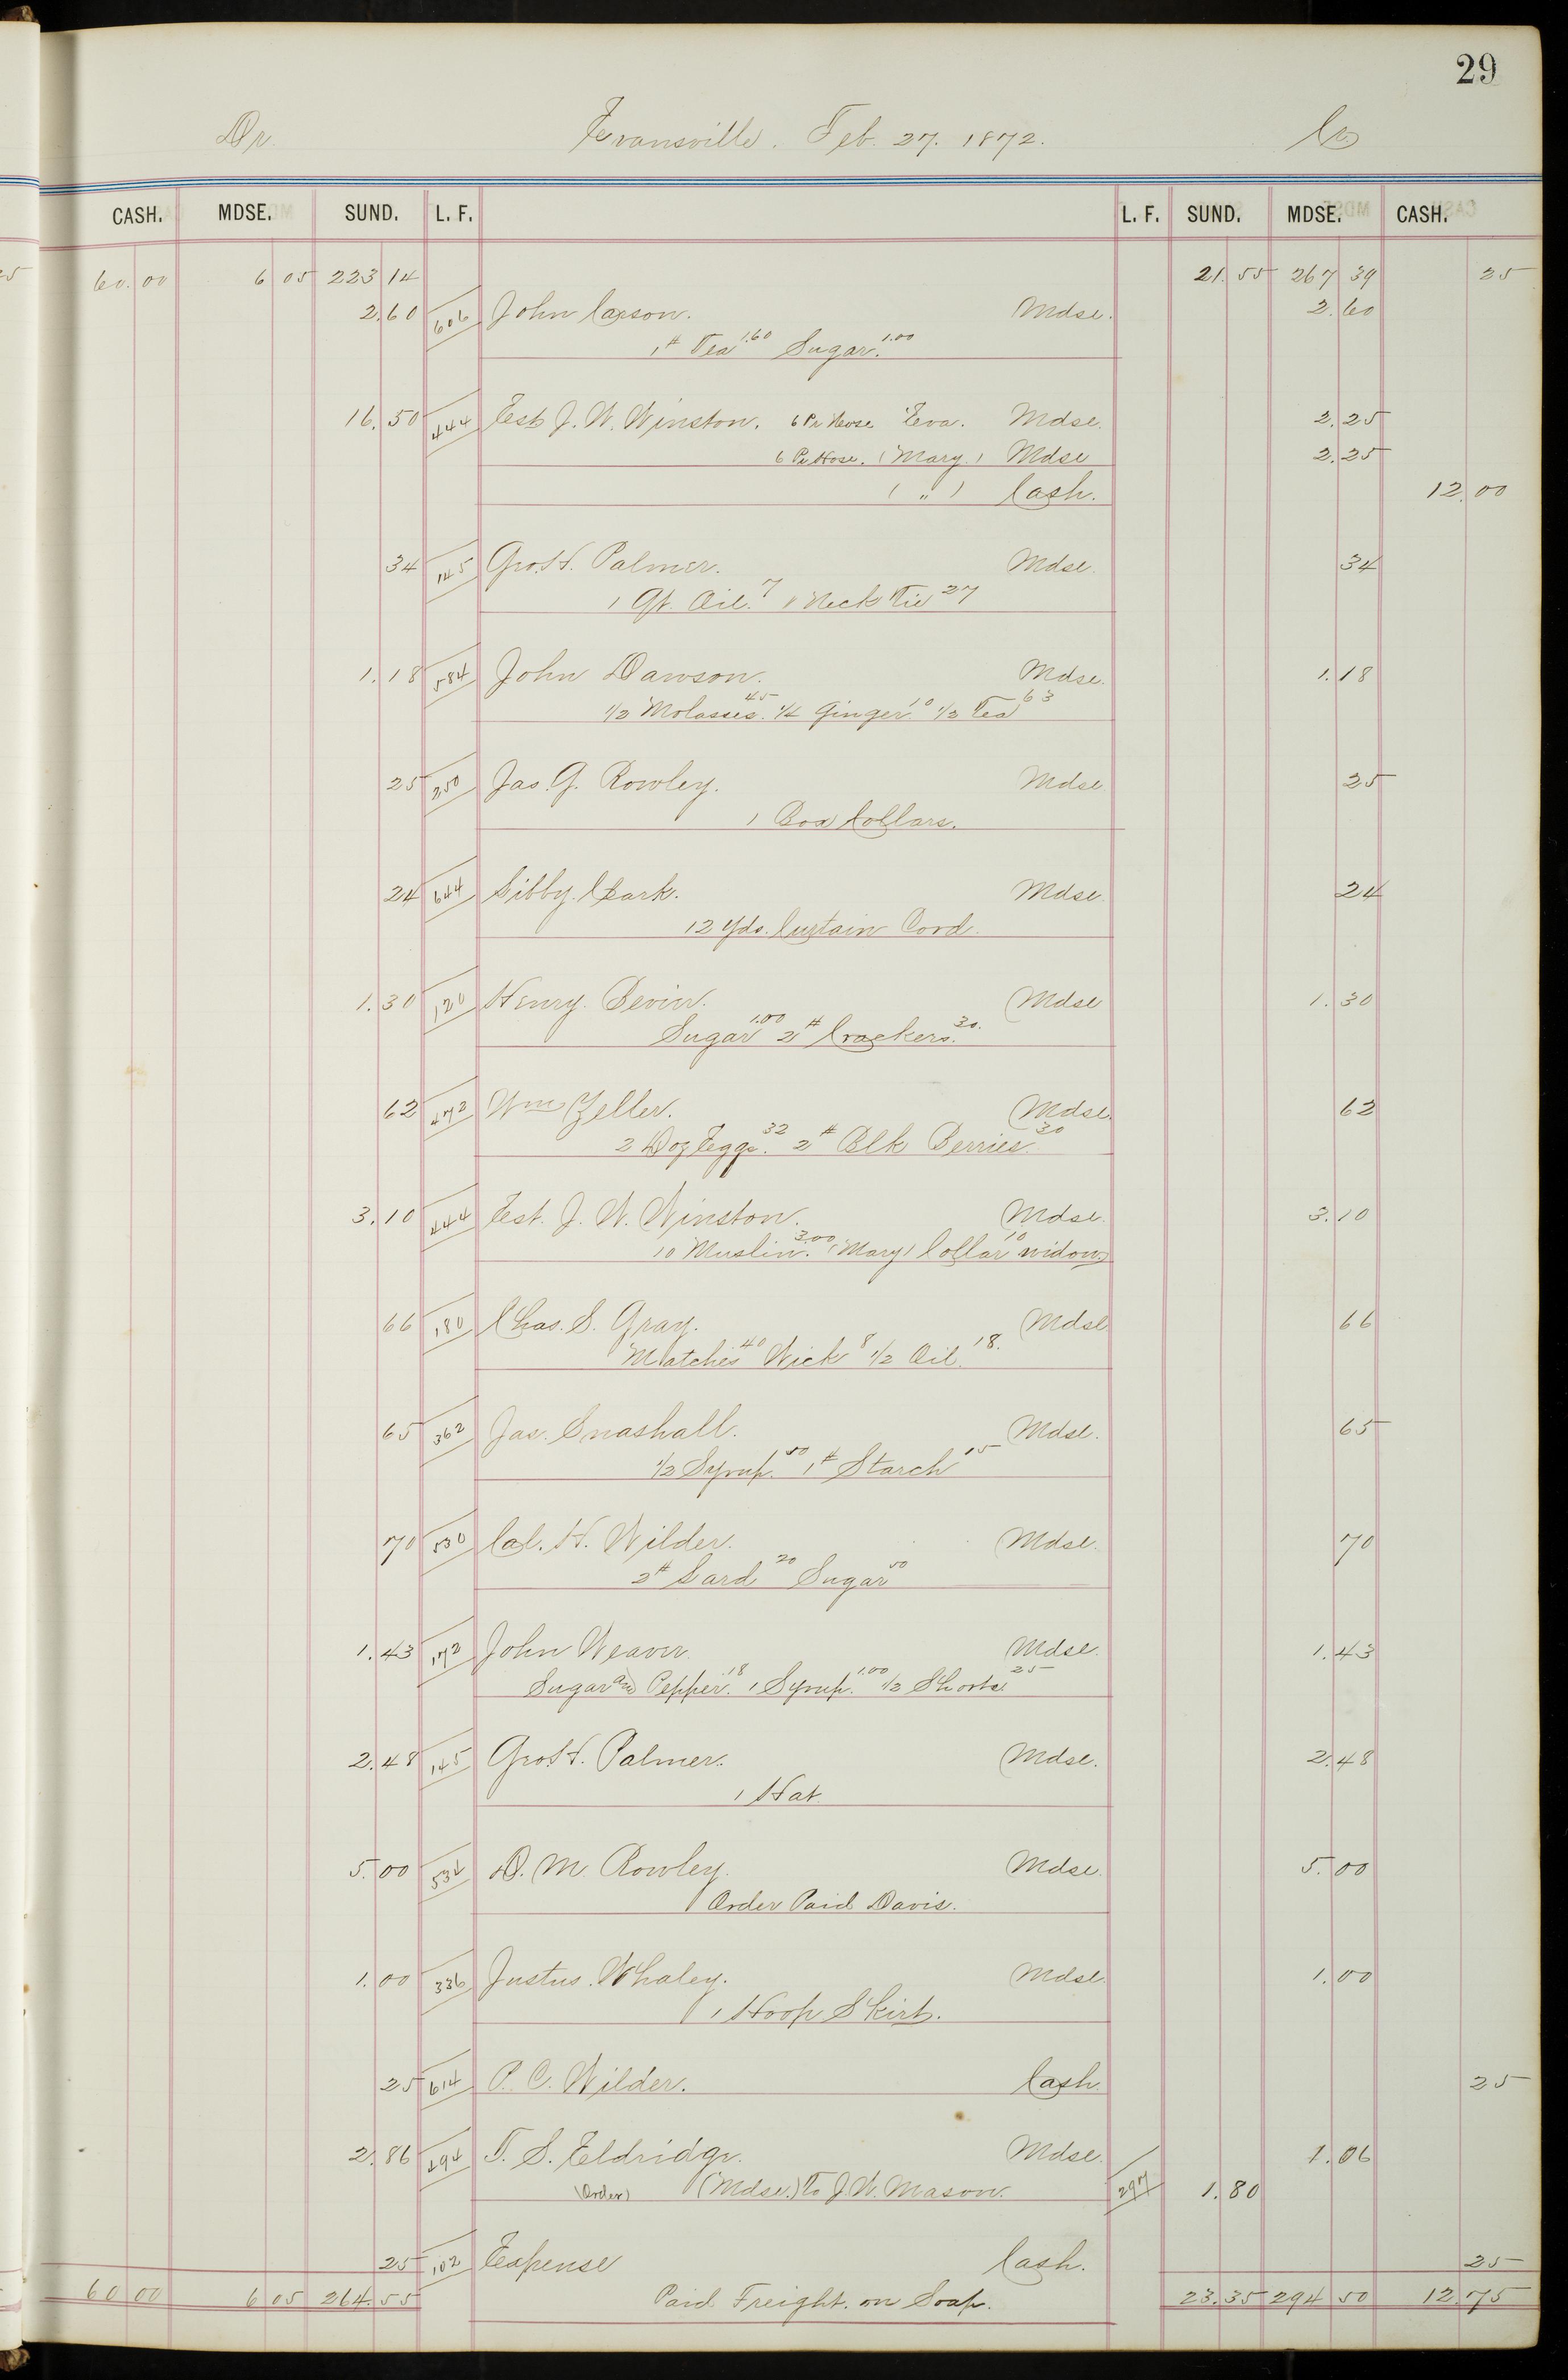 29
Dr. Evansville. Feb. 27. 1872. Cr
CASH. MDSE. SUND. L. F. L. F. SUND. MDSE. CASH.
60.00 6 05 223 14 21.55 267 39 25
2.60 606 John Carson. Mdse. 2.60
1# Tea 1.60 Sugar. 1.00
16.50 444 Est J. W. Winston. 6 Pr Hose Eva. Mdse. 2.25
6 Pr Hose. (Mary.) Mdse 2.25
( " ) Cash. 12.00
34 145 Geo. H. Palmer. Mdse. 34
1 Qt. Oil. 7 1 Neck Tie 27
1.18 584 John Dawson. Mdse. 1.18
1/2 Molasses. 45 1/4 Ginger 10 1/2 Tea 63
25 250 Jas. G. Rowley. Mdse 25
1 Box Collars.
24 644 Libby. Clark. Mdse. 24
12 Yds. Curtain Cord.
1.30 120 Henry. Bevier. Mdse 1.30
Sugar 1.00 2# Crackers. 30.
62 472 Wm Zeller. Mdse. 62
2 Doz Eggs. 32 2# Blk Berries 30
3.10 444 Est. J. W. Winston. Mdse. 3.10
10 Muslin. 3.00 (Mary) Collar 10 widow
66 180 Chas. S. Gray. Mdse 66
Matches 40 Wick 8 1/2 Oil. 18.
65 362 Jas. Snashall. Mdse. 65
1/2 Syrup. 50 1# Starch 15
70 530 Cal. H. Wilder. Mdse. 70
2# Lard 20 Sugar 50
1.43 172 John Weaver Mdse. 1.43
Sugar and Pepper. 18 1 Syrup. 1.00 1/2 Shorts 25
2.48 145 Geo. H. Palmer. Mdse. 2.48
1 Hat
5.00 534 D. M. Rowley. Mdse. 5.00
Order Paid Davis.
1.00 336 Justus. Whaley. Mdse. 1.00
1 Hoop Skirt.
25 614 P. C. Wilder. Cash. 25
2.86 494 T. S. Eldridge. Mdse. 1.06
(Order) (Mdse.) To J. W. Mason. 297 1.80
25 102 Expense Cash. 25
60 00 6 05 264.55 Paid Freight. on Soap. 23.35 294 50 12.75